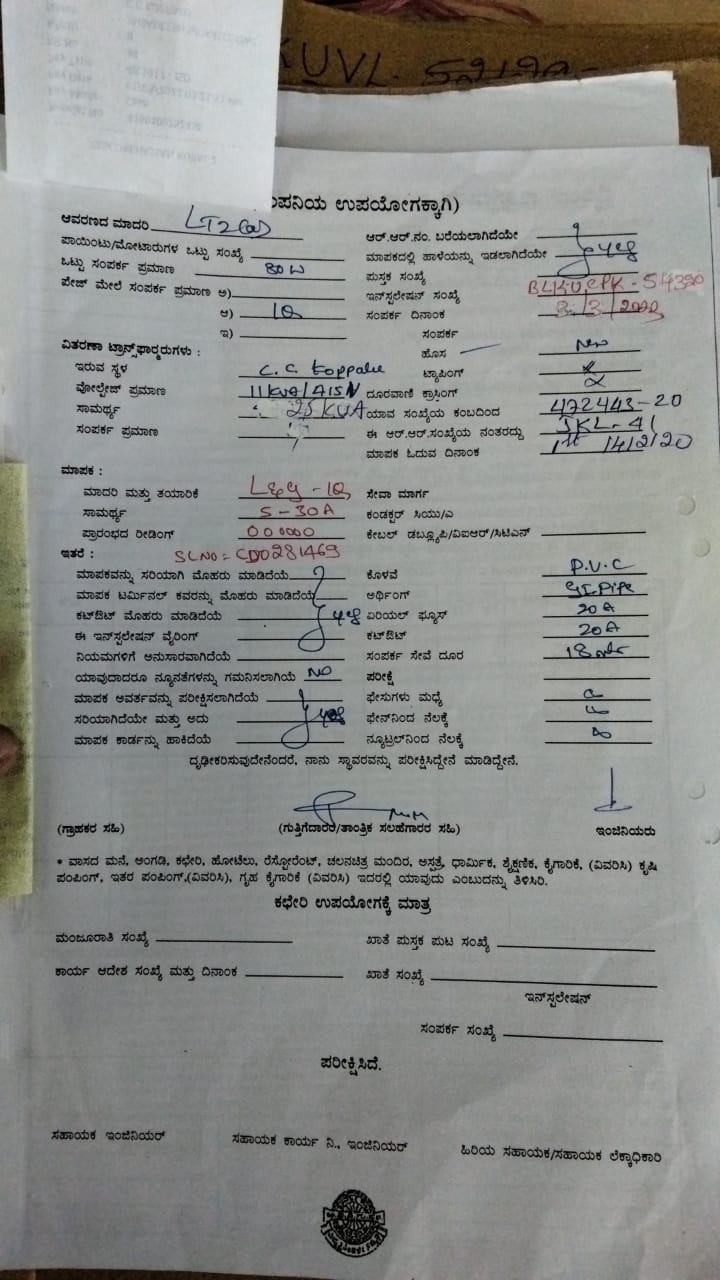 KUVL- 52120-
ಂಪನಿಯ ಉಪಯೋಗಕ್ಕಾಗಿ)
ಆವರಣದ ಮಾದರಿ LT2(a)
ಪಾಯಿಂಟು/ಮೋಟಾರುಗಳ ಒಟ್ಟು ಸಂಖ್ಯೆ
ಒಟ್ಟು ಸಂಪರ್ಕ ಪ್ರಮಾಣ 80W
ಪೇಜ್ ಮೇಲೆ ಸಂಪರ್ಕ ಪ್ರಮಾಣ ಅ)
ಆ) 1Q
ಇ)
ಆರ್.ಆರ್.ನಂ. ಬರೆಯಲಾಗಿದೆಯೇ
ಮಾಪಕದಲ್ಲಿ ಹಾಳೆಯನ್ನು ಇಡಲಾಗಿದೆಯೇ yes
ಪುಸ್ತಕ ಸಂಖ್ಯೆ
ಇನ್‌ಸ್ಟಲೇಷನ್ ಸಂಖ್ಯೆ
ಸಂಪರ್ಕ ದಿನಾಂಕ
ಸಂಪರ್ಕ
ವಿತರಣಾ ಟ್ರಾನ್ಸ್‌ಫಾರ್‍ಮರುಗಳು :
ಇರುವ ಸ್ಥಳ C.C. Koppalu
ವೋಲ್ಟೇಜ್ ಪ್ರಮಾಣ
ಸಾಮರ್ಥ್ಯ 25 KVA
ಸಂಪರ್ಕ ಪ್ರಮಾಣ
ಹೊಸ New
ಟ್ಯಾಪಿಂಗ್
ದೂರವಾಣಿ ಕ್ರಾಸಿಂಗ್
ಯಾವ ಸಂಖ್ಯೆಯ ಕಂಬದಿಂದ 472443-20
ಈ ಆರ್.ಆರ್.ಸಂಖ್ಯೆಯ ನಂತರದ್ದು
ಮಾಪಕ ಓದುವ ದಿನಾಂಕ
ಮಾಪಕ :
ಮಾದರಿ ಮತ್ತು ತಯಾರಿಕೆ
ಸಾಮರ್ಥ್ಯ 5-30A
ಪ್ರಾರಂಭದ ರೀಡಿಂಗ್ 00000
ಸೇವಾ ಮಾರ್ಗ
ಕಂಡಕ್ಟರ್ ಸಿಯು/ಎ
ಕೇಬಲ್ ಡಬ್ಲ್ಯೂಪಿ/ವಿಐಆರ್/ಸಿಟಿಎಸ್
ಇತರೆ : SLNO=CD0281469
ಮಾಪಕವನ್ನು ಸರಿಯಾಗಿ ಮೊಹರು ಮಾಡಿದೆಯೆ
ಮಾಪಕ ಟರ್ಮಿನಲ್ ಕವರನ್ನು ಮೊಹರು ಮಾಡಿದೆಯೆ
ಕಟ್‌ಔಟ್ ಮೊಹರು ಮಾಡಿದೆಯೆ yes
ಈ ಇನ್‌ಸ್ಟಲೇಷನ್ ವೈರಿಂಗ್
ನಿಯಮಗಳಿಗೆ ಅನುಸಾರವಾಗಿದೆಯೆ
ಯಾವುದಾದರೂ ನ್ಯೂನತೆಗಳನ್ನು ಗಮನಿಸಲಾಗಿಯೆ NO
ಮಾಪಕ ಅವರ್ತವನ್ನು ಪರೀಕ್ಷಿಸಲಾಗಿದೆಯೆ
ಸರಿಯಾಗಿದೆಯೇ ಮತ್ತು ಅದು yes
ಮಾಪಕ ಕಾರ್ಡನ್ನು ಹಾಕಿದೆಯೆ
ಕೊಳವೆ P.V.C
ಅರ್ಥಿಂಗ್ GI.Pipe
ಏರಿಯಲ್ ಫ್ಯೂಸ್ 20A
ಕಟ್‌ಔಟ್ 20A
ಸಂಪರ್ಕ ಸೇವೆ ದೂರ
ಪರೀಕ್ಷೆ
ಫೇಸುಗಳು ಮಧ್ಯೆ
ಫೇಸ್‌ನಿಂದ ನೆಲಕ್ಕೆ
ನ್ಯೂಟ್ರಲ್‌ನಿಂದ ನೆಲಕ್ಕೆ
ದೃಢೀಕರಿಸುವುದೇನೆಂದರೆ, ನಾನು ಸ್ಥಾವರವನ್ನು ಪರೀಕ್ಷಿಸಿದ್ದೇನೆ ಮಾಡಿದ್ದೇನೆ.
(ಗ್ರಾಹಕರ ಸಹಿ) (ಗುತ್ತಿಗೆದಾರರ/ತಾಂತ್ರಿಕ ಸಲಹೆಗಾರರ ಸಹಿ) ಇಂಜಿನಿಯರು
• ವಾಸದ ಮನೆ, ಅಂಗಡಿ, ಕಛೇರಿ, ಹೋಟೆಲು, ರೆಸ್ಟೋರೆಂಟ್, ಚಲನಚಿತ್ರ ಮಂದಿರ, ಅಸ್ಪತ್ರೆ, ಧಾರ್ಮಿಕ, ಶೈಕ್ಷಣಿಕ, ಕೈಗಾರಿಕೆ, (ವಿವರಿಸಿ) ಕೃಷಿ
ಪಂಪಿಂಗ್, ಇತರ ಪಂಪಿಂಗ್,(ವಿವರಿಸಿ), ಗೃಹ ಕೈಗಾರಿಕೆ (ವಿವರಿಸಿ) ಇದರಲ್ಲಿ ಯಾವುದು ಎಂಬುದನ್ನು ತಿಳಿಸಿರಿ.
ಕಛೇರಿ ಉಪಯೋಗಕ್ಕೆ ಮಾತ್ರ
ಮಂಜೂರಾತಿ ಸಂಖ್ಯೆ ಖಾತೆ ಪುಸ್ತಕ ಪುಟ ಸಂಖ್ಯೆ
ಕಾರ್ಯ ಆದೇಶ ಸಂಖ್ಯೆ ಮತ್ತು ದಿನಾಂಕ ಖಾತೆ ಸಂಖ್ಯೆ
ಇನ್‌ಸ್ಟಲೇಷನ್
ಸಂಪರ್ಕ ಸಂಖ್ಯೆ
ಪರೀಕ್ಷಿಸಿದೆ.
ಸಹಾಯಕ ಇಂಜಿನಿಯರ್ ಸಹಾಯಕ ಕಾರ್ಯ ನಿ., ಇಂಜಿನಿಯರ್ ಹಿರಿಯ ಸಹಾಯಕ/ಸಹಾಯಕ ಲೆಕ್ಕಾಧಿಕಾರಿ